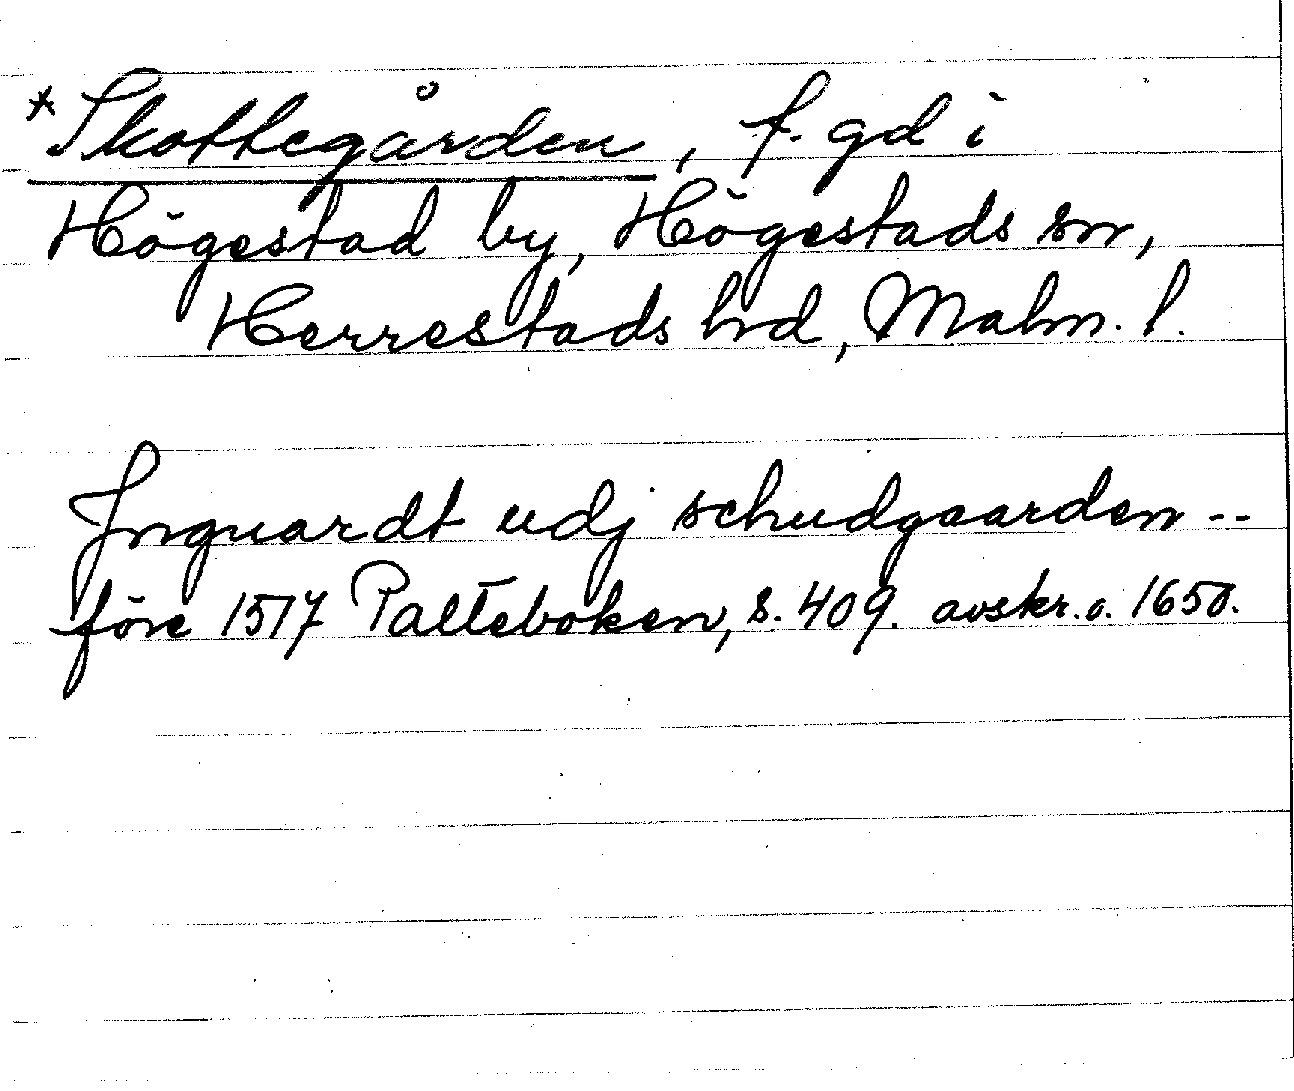 *Skottegården, f. gd i
Högestad by, Högestads sn,
Herrestads hrd, Malm. l.
Inguardt udj schudgaarden --
före 1517 Palteboken, s. 409. avskr. o. 1650.